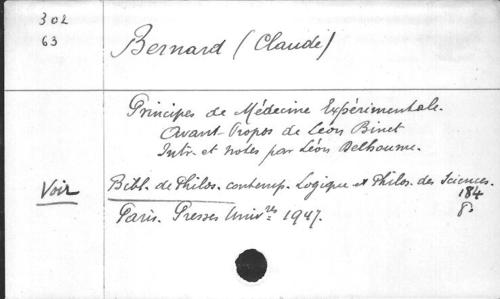 302
63
Bernard (Claude)
Principes de Médecine Expérimentale.
Avant-Propos de Léon Binet
Intr. et notes par Léon Delhoume.
Voir
Bibl. de Philos. contemp. Logique et Philos. des Sciences.
184
8°
Paris. Presses Univ.res 1947.